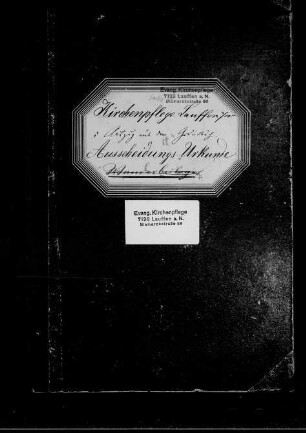 Evang. Kirchenpflege
7128 Lauffen a. N.
Bismarckstraße 66
Kirchenpflege Lauffen
Auszug aus dem
Ausscheidungs-Urkunde
Evang. Kirchenpflege
7128 Lauffen a. N.
Bismarckstraße 66